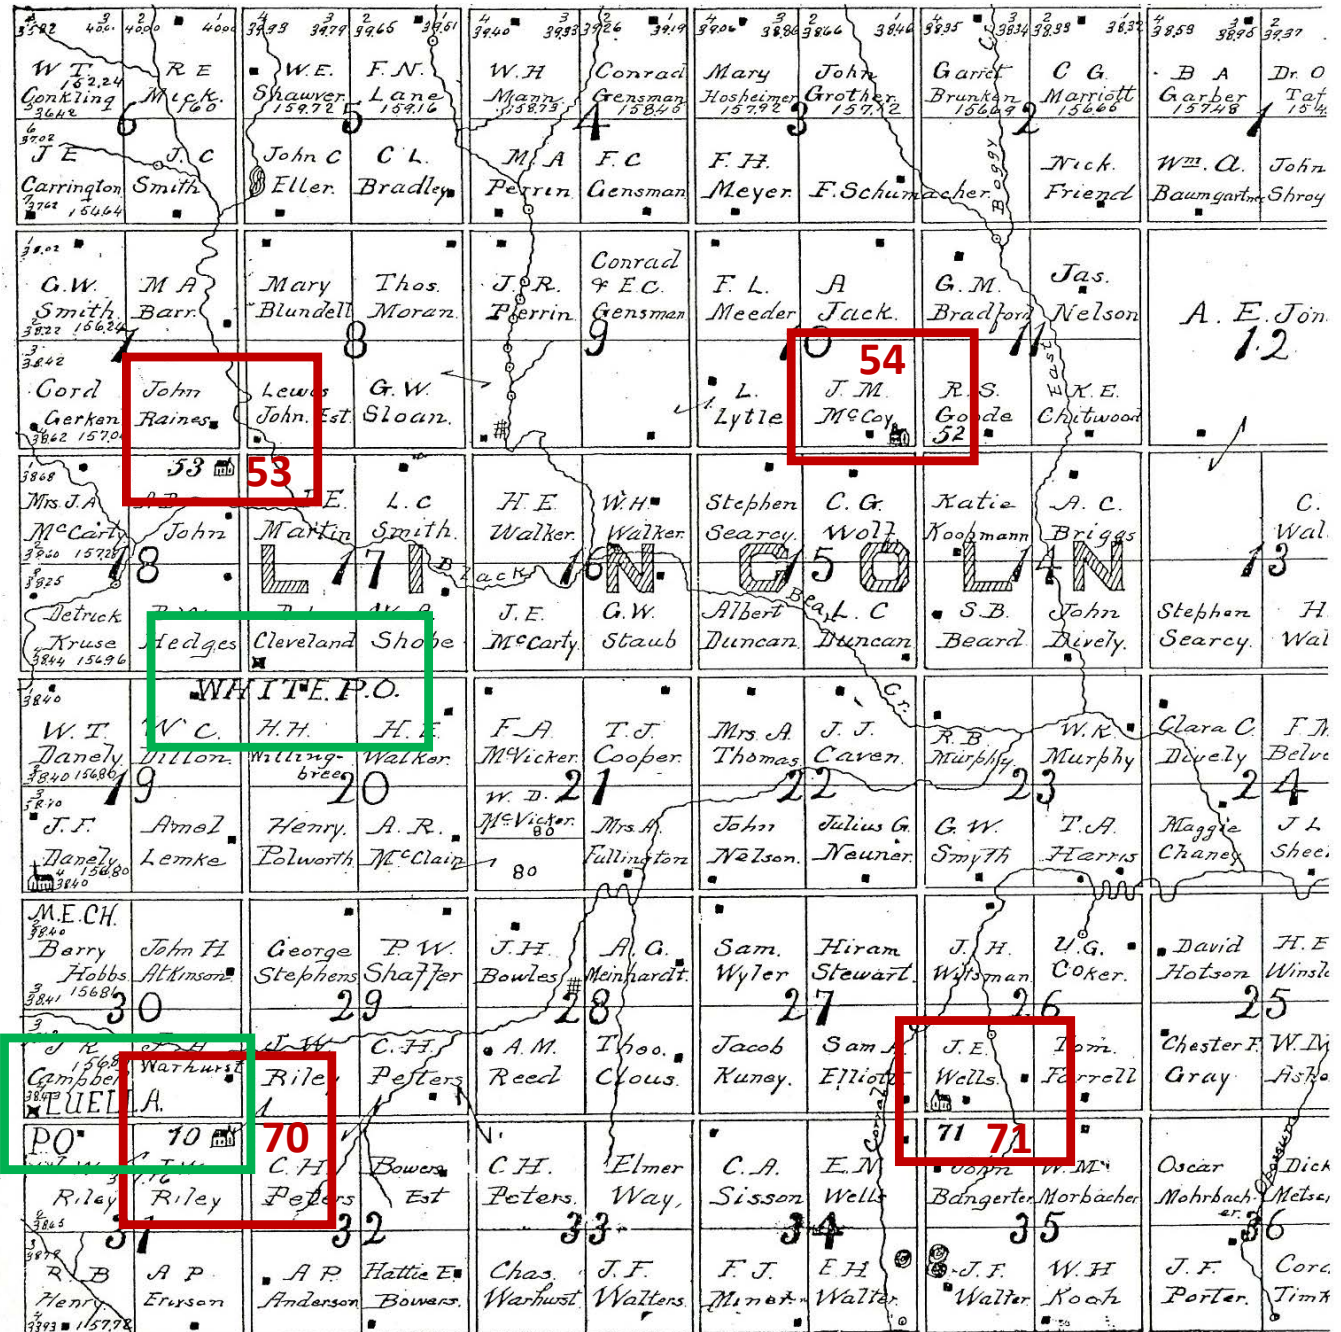 W T. 152.24
Conkling
R E
Mick. 160
W. E.
Shawver. 159.72
F. N.
Lane 159.16
W. H
Mann
Conrad
Gensman
Mary
Hosheimer 157.92
John
Grother. 157.12
Garret
Brunken
C G.
Marriott 156.66
B A
Garber 157.48
Dr. O
6 5 4 3 2 1
J E
Carrington
154.64
J. C
Smith
John C
Eller.
C L.
Bradley
M. A
Perrin
F. C
Gensman
F. H.
Meyer.
F. Schumacher.
Boggy
Nick.
Friend
Wm. A.
Baumgartner
John
Shroy
G. W.
Smith.
M A
Barr.
Mary
Blundell
Thos.
Moran.
J. R.
Perrin
Conrad
& E.C.
Gensman
F. L.
Meeder
A
Jack.
G. M.
Bradford
Jas.
Nelson
A. E. Jon
7 8 9 10 11 12
Cord
Gerken
John
Raines
Lewis
John. Est.
G. W.
Sloan.
L.
Lytle
54
J. M.
McCoy
R. S.
Goode
52
East
K. E.
Chitwood
53
53
Mrs. J. A
McCarty
A B
John
J. E.
Martin
L. C
Smith.
H. E.
Walker.
W. H.
Walker
Stephen
Searcy.
C. G.
Wolf
Katie
Koopmann
A. C.
Briggs
C.
Wal
18 17 16 15 14 13
LINCOLN
Black Bear Cr.
Detrick
Kruse
Hedges
Cleveland
Shobe
J. E.
McCarty
G. W.
Staub
Albert
Duncan
L. C
Duncan
S. B.
Beard
John
Dively.
Stephen
Searcy.
H.
Wal
WHITE P.O.
W. T.
Danely
W C.
Dillon
H. H.
Willing-
bree
H. E
Walker
F. A.
McVicker.
T. J.
Cooper.
Mrs. A
Thomas
J. J.
Caven.
R B
Murphy
W. K
Murphy
Clara C.
Dively
F. M
Belve
19 20 21 22 23 24
J. F.
Danely
Amel
Lemke
Henry.
Polworth
A. R.
McClain
W. D.
McVicker.
80
80
Mrs. A
Fullington
John
Nelson.
Julius G.
Neuner.
G. W.
Smyth
T. A.
Harris
Maggie
Chaney
J L
Shee
M.E. CH.
Berry
Hobbs
John H
Atkinson
George
Stephens
P. W.
Shaffer
J. H.
Bowles
A. G.
Meinhardt.
Sam.
Wyler
Hiram
Stewart.
J. H.
Witsman
U. G.
Coker.
David
Hotson
H. E
Winsl
30 29 28 27 26 25
J R
Campbell
Warhurst
J. W
Riley
C. H.
Pefters
A. M.
Reed
Thos.
Clous.
Jacob
Kuney.
Sam
Elliott
J. E.
Wells.
Tom.
Farrell
Chester F.
Gray
W. M
LUELLA
PO
70
70
71
71
Corral
Riley
J. W.
Riley
C. H
Peters
Bowers
Est
C. H.
Peters.
Elmer
Way,
C. A.
Sisson
E. N
Wells
John
Bangerter
W. M
Morbacher
Oscar
Mohrbach-
er.
Dick
Possum
31 32 33 34 35 36
R. B
Henry
A P.
Erivson
A P.
Anderson
Hattie E.
Bowers.
Chas.
Warhurst
J. F.
Walters.
F. J.
Minor
E. H
Walter
J. F.
Walter
W. H
Koch
J. F.
Porter.
Cord
Timk